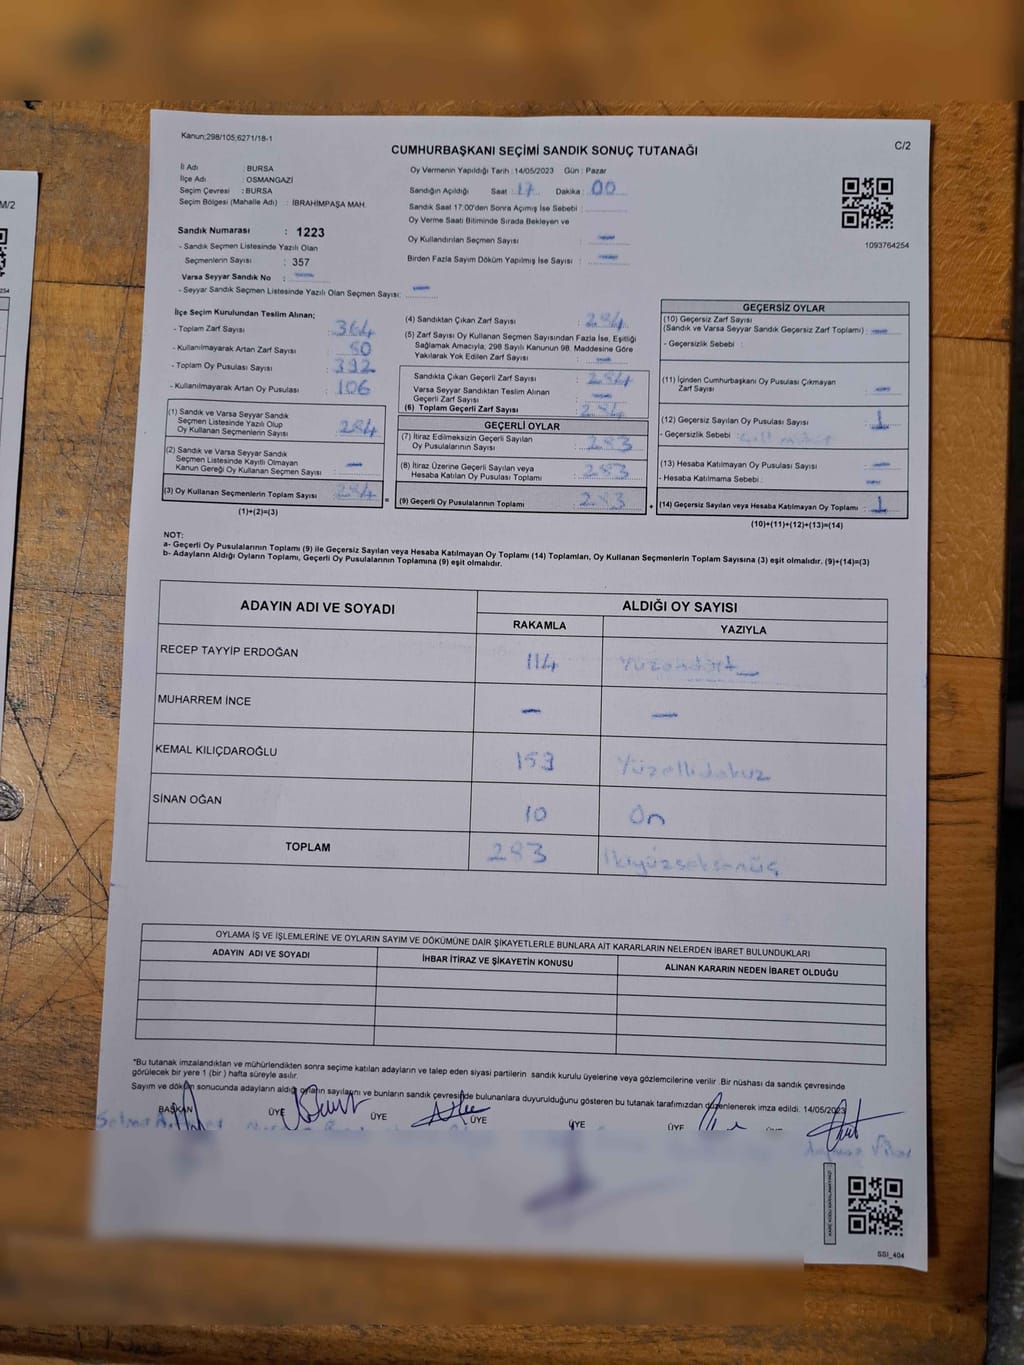 Kanun;298/105;6271/18-1
CUMHURBAŞKANI SEÇİMİ SANDIK SONUÇ TUTANAĞI
C/2
İl Adı : BURSA
İlçe Adı : OSMANGAZİ
Seçim Çevresi : BURSA
Seçim Bölgesi (Mahalle Adı) : İBRAHİMPAŞA MAH.
Oy Vermenin Yapıldığı Tarih :14/05/2023 Gün : Pazar
Sandığın Açıldığı Saat : 17 Dakika : 00
Sandık Saat 17:00'den Sonra Açmış İse Sebebi :
Oy Verme Saati Bitiminde Sırada Bekleyen ve
Oy Kullandırılan Seçmen Sayısı : —
Birden Fazla Sayım Döküm Yapılmış İse Sayısı : —
1093764254
Sandık Numarası : 1223
- Sandık Seçmen Listesinde Yazılı Olan
Seçmenlerin Sayısı : 357
Varsa Seyyar Sandık No : —
- Seyyar Sandık Seçmen Listesinde Yazılı Olan Seçmen Sayısı: —
İlçe Seçim Kurulundan Teslim Alınan;
- Toplam Zarf Sayısı : 364
- Kullanılmayarak Artan Zarf Sayısı : 80
- Toplam Oy Pusulası Sayısı : 392
- Kullanılmayarak Artan Oy Pusulası : 106
(1) Sandık ve Varsa Seyyar Sandık
Seçmen Listesinde Yazılı Olup
Oy Kullanan Seçmenlerin Sayısı : 284
(2) Sandık ve Varsa Seyyar Sandık
Seçmen Listesinde Kayıtlı Olmayan
Kanun Gereği Oy Kullanan Seçmen Sayısı : —
(3) Oy Kullanan Seçmenlerin Toplam Sayısı : 284 =
(1)+(2)=(3)
(4) Sandıktan Çıkan Zarf Sayısı : 284
(5) Zarf Sayısı Oy Kullanan Seçmen Sayısından Fazla İse, Eşitliği
Sağlamak Amacıyla, 298 Sayılı Kanunun 98. Maddesine Göre
Yakılarak Yok Edilen Zarf Sayısı : —
Sandıkta Çıkan Geçerli Zarf Sayısı : 284
Varsa Seyyar Sandıktan Teslim Alınan
Geçerli Zarf Sayısı : —
(6) Toplam Geçerli Zarf Sayısı : 284
GEÇERLİ OYLAR
(7) İtiraz Edilmeksizin Geçerli Sayılan
Oy Pusulalarının Sayısı : 283
(8) İtiraz Üzerine Geçerli Sayılan veya
Hesaba Katılan Oy Pusulası Toplamı : 283
(9) Geçerli Oy Pusulalarının Toplamı : 283 +
GEÇERSİZ OYLAR
(10) Geçersiz Zarf Sayısı
(Sandık ve Varsa Seyyar Sandık Geçersiz Zarf Toplamı) : —
- Geçersizlik Sebebi :
(11) İçinden Cumhurbaşkanı Oy Pusulası Çıkmayan
Zarf Sayısı : —
(12) Geçersiz Sayılan Oy Pusulası Sayısı : 1
- Geçersizlik Sebebi :
(13) Hesaba Katılmayan Oy Pusulası Sayısı : —
- Hesaba Katılmama Sebebi : —
(14) Geçersiz Sayılan veya Hesaba Katılmayan Oy Toplamı : 1
(10)+(11)+(12)+(13)=(14)
NOT:
a- Geçerli Oy Pusulalarının Toplamı (9) ile Geçersiz Sayılan veya Hesaba Katılmayan Oy Toplamı (14) Toplamları, Oy Kullanan Seçmenlerin Toplam Sayısına (3) eşit olmalıdır. (9)+(14)=(3)
b- Adayların Aldığı Oyların Toplamı, Geçerli Oy Pusulalarının Toplamına (9) eşit olmalıdır.
ADAYIN ADI VE SOYADI ALDIĞI OY SAYISI
RAKAMLA YAZIYLA
RECEP TAYYİP ERDOĞAN 114 Yüzondört
MUHARREM İNCE — —
KEMAL KILIÇDAROĞLU 159 Yüzellidokuz
SİNAN OĞAN 10 On
TOPLAM 283 İkiyüzseksenüç
OYLAMA İŞ VE İŞLEMLERİNE VE OYLARIN SAYIM VE DÖKÜMÜNE DAİR ŞİKAYETLERLE BUNLARA AİT KARARLARIN NELERDEN İBARET BULUNDUKLARI
ADAYIN ADI VE SOYADI İHBAR İTİRAZ VE ŞİKAYETİN KONUSU ALINAN KARARIN NEDEN İBARET OLDUĞU
*Bu tutanak imzalandıktan ve mühürlendikten sonra seçime katılan adayların ve talep eden siyasi partilerin sandık kurulu üyelerine veya gözlemcilerine verilir. Bir nüshası da sandık çevresinde
görülecek bir yere 1 (bir ) hafta süreyle asılır.
Sayım ve döküm sonucunda adayların aldığı oyların sayılarını ve bunların sandık çevresinde bulunanlara duyurulduğunu gösteren bu tutanak tarafımızdan düzenlenerek imza edildi. 14/05/2023
BAŞKAN ÜYE ÜYE ÜYE ÜYE ÜYE
SSI_404
M/2